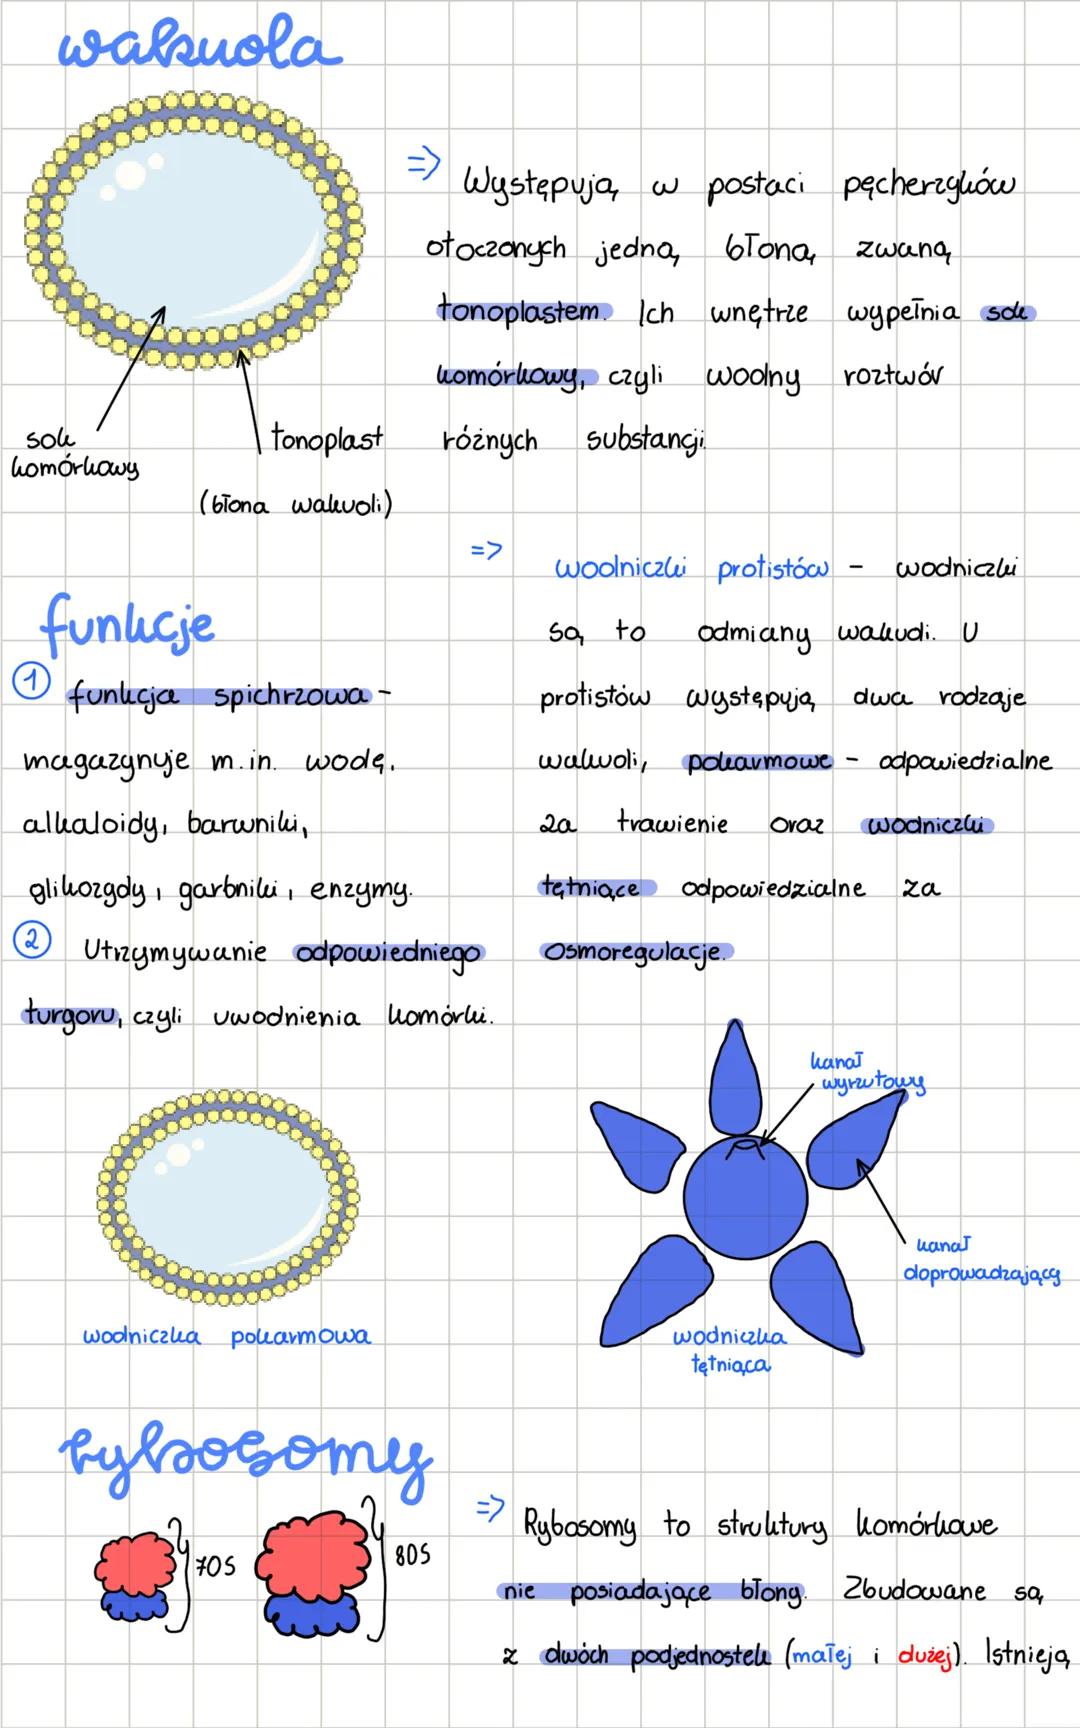 wakuola
=> Występują w postaci pęcherzyków
otoczonych jedną błoną zwaną
tonoplastem. Ich wnętrze wypełnia sok
komórkowy, czyli wodny roztwór
różnych substancji.
sok
komórkowy
tonoplast
(błona wakuoli)
funkcje
1 funkcja spichrzowa -
magazynuje m.in. wodę,
alkaloidy, barwniki,
glikozydy, garbniki, enzymy.
2 Utrzymywanie odpowiedniego
turgoru, czyli uwodnienia komórki.
=> wodniczki protistów - wodniczki
są to odmiany wakuoli. U
protistów występują dwa rodzaje
wakuoli, pokarmowe - odpowiedzialne
za trawienie oraz wodniczki
tętniące odpowiedzialne za
osmoregulacje.
wodniczka pokarmowa
kanał
wyrzutowy
kanał
doprowadzający
wodniczka
tętniąca
rybosomy
70S
80S
=> Rybosomy to struktury komórkowe
nie posiadające błony. Zbudowane są
z dwóch podjednostek (małej i dużej). Istnieją